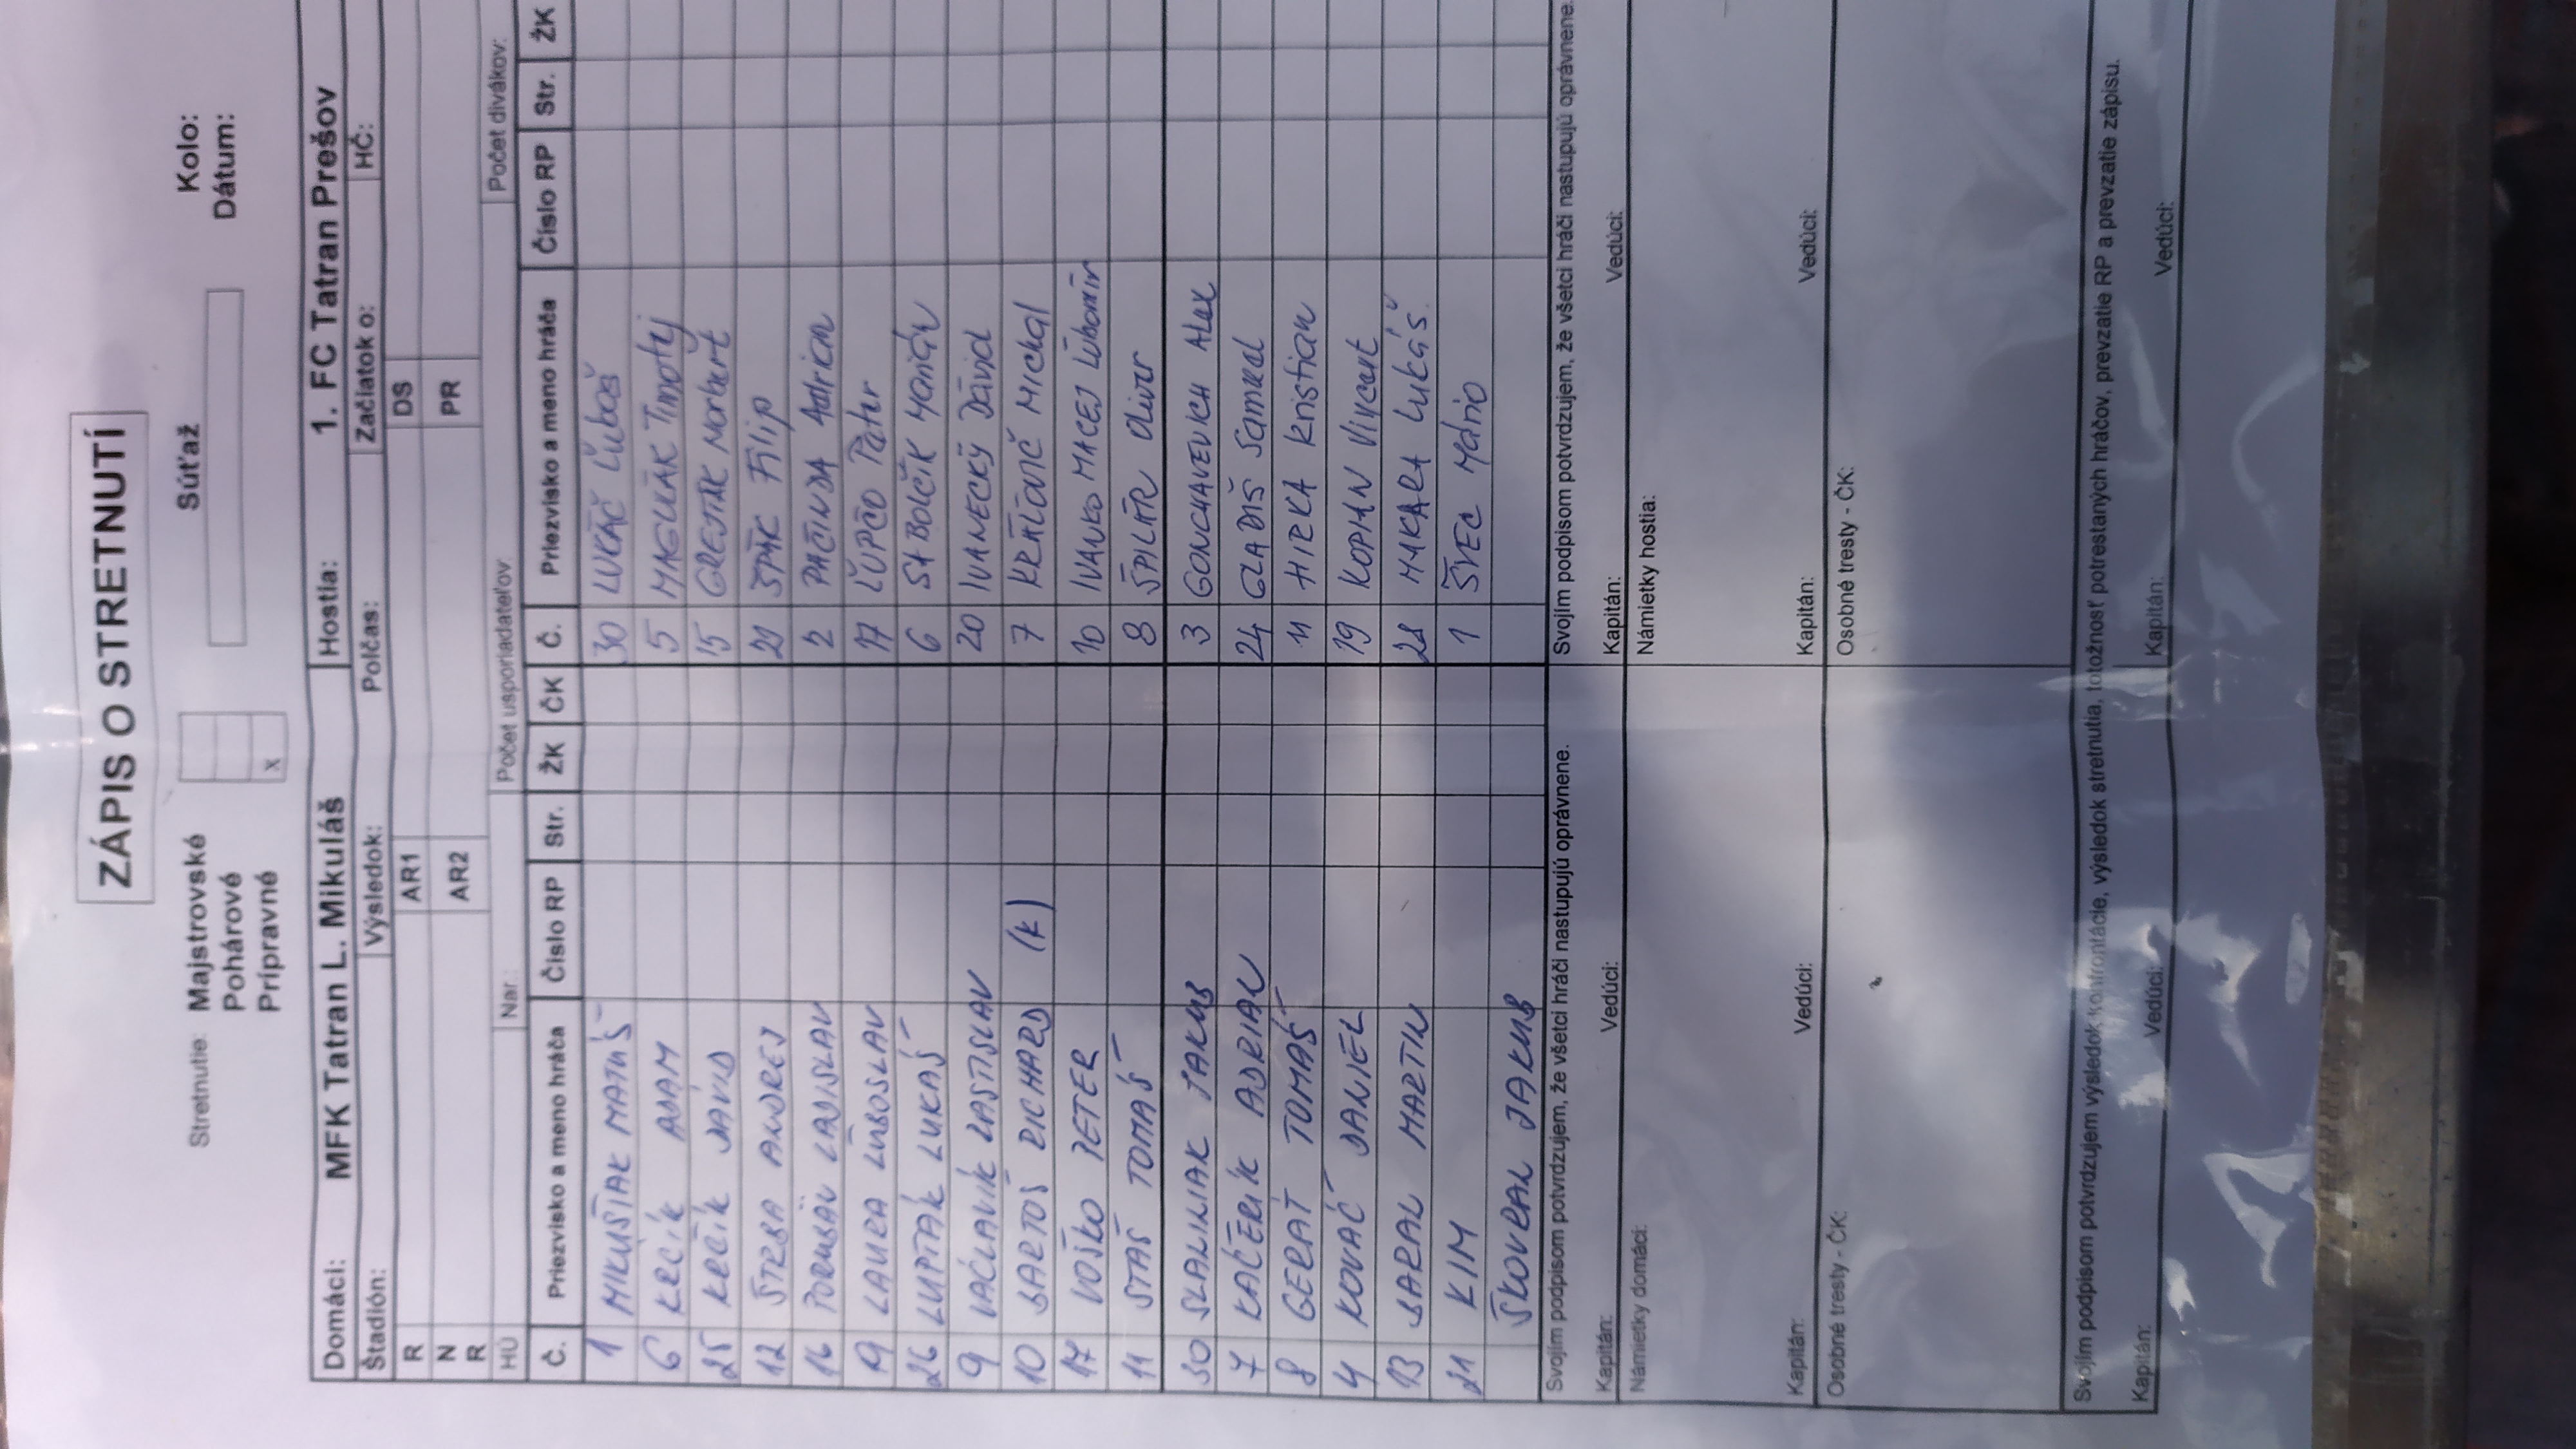 ZÁPIS O STRETNUTÍ
Stretnutie: Majstrovské Súťaž Kolo:
Pohárové Dátum:
Prípravné x
Domáci: MFK Tatran L. Mikuláš Hostia: 1. FC Tatran Prešov
Štadión: Výsledok: Polčas: Začiatok o: HČ:
R AR1 DS
N R AR2 PR
HÚ Nar.: Počet usporiadateľov: Počet divákov:
Č. Priezvisko a meno hráča Číslo RP Str. ŽK ČK Č. Priezvisko a meno hráča Číslo RP Str. ŽK
1 MIKUŠIAK MATÚŠ 30 LUKÁČ Ľuboš
6 KRČÍK ADAM 5 MAGLUÁK Timotej
25 KRČÍK DÁVID 15 GREŠÁK Norbert
12 ŠTRBA ANDREJ 29 SPÁK Filip
16 LADISLAV 2 PAČINDA Adrian
19 LAURA ĽUBOSLAV 17 ĽUPČO Peter
26 LUPTÁK LUKÁŠ 6 SABOLČÍK Marián
9 VÁCLAVIK RASTISLAV 20 IVANECKÝ Dávid
10 BARTOŠ RICHARD (K) 7 KRÁĽOVIČ Michal
17 VOŠKO PETER 10 IVANKO MACEJ Ľubomír
11 STAŠ TOMÁŠ 8 ŠPILÁR Oliver
30 SLANINIAK JAKUB 3 GONCHAVEVICH Alex
7 KAČERÍK ADRIAN 24 GLADIŠ Samuel
8 GERÁT TOMÁŠ 11 HIRKA Kristian
4 KOVÁČ DANIEL 19 KOPAN Vincent
13 BARAN MARTIN 28 MAKARA Lukáš
21 KIM 1 ŠVEC Mário
ŠKOVRAN JAKUB
Svojím podpisom potvrdzujem, že všetci hráči nastupujú oprávnene. Svojím podpisom potvrdzujem, že všetci hráči nastupujú oprávnene.
Kapitán: Vedúci: Kapitán: Vedúci:
Námietky domáci: Námietky hostia:
Kapitán: Vedúci: Kapitán: Vedúci:
Osobné tresty - ČK: Osobné tresty - ČK:
Svojím podpisom potvrdzujem výsledok konfrontácie, výsledok stretnutia, totožnosť potrestaných hráčov, prevzatie RP a prevzatie zápisu.
Kapitán: Vedúci: Kapitán: Vedúci: